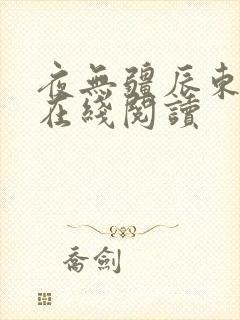 夜無疆辰東
在綫閱讀
喬劍